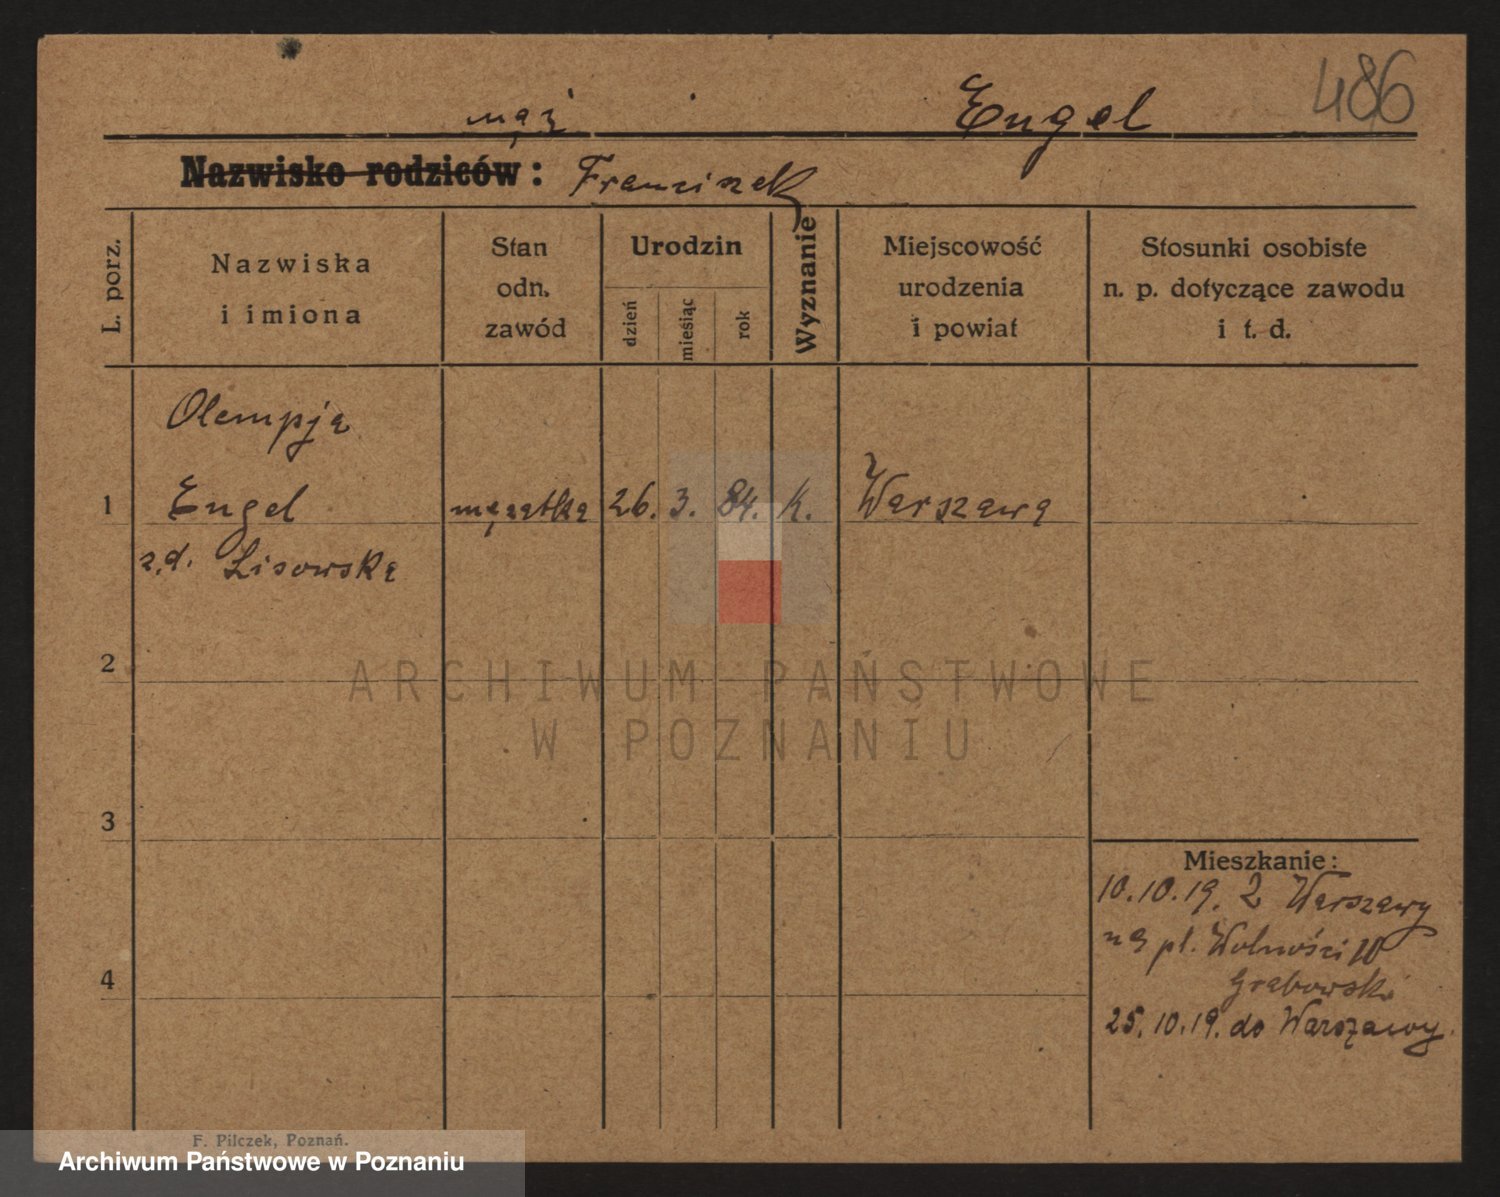 486
mąż Engel
Nazwisko rodziców: Franciszek
L. porz.
Nazwiska
i imiona
Stan
odn.
zawód
Urodzin
dzień
miesiąc
rok
Wyznanie
Miejscowość
urodzenia
i powiat
Stosunki osobiste
n. p. dotyczące zawodu
i t. d.
Olempja
1 Engel mężatka 26. 3. 84. k. Warszawa
z.d. Lisowska
2
ARCHIWUM PAŃSTWOWE
W POZNANIU
3
Mieszkanie:
10.10.19. z Warszawy
na pl. Wolności 10
Grabowski
4
25.10.19. do Warszawy.
F. Pilczek, Poznań.
Archiwum Państwowe w Poznaniu